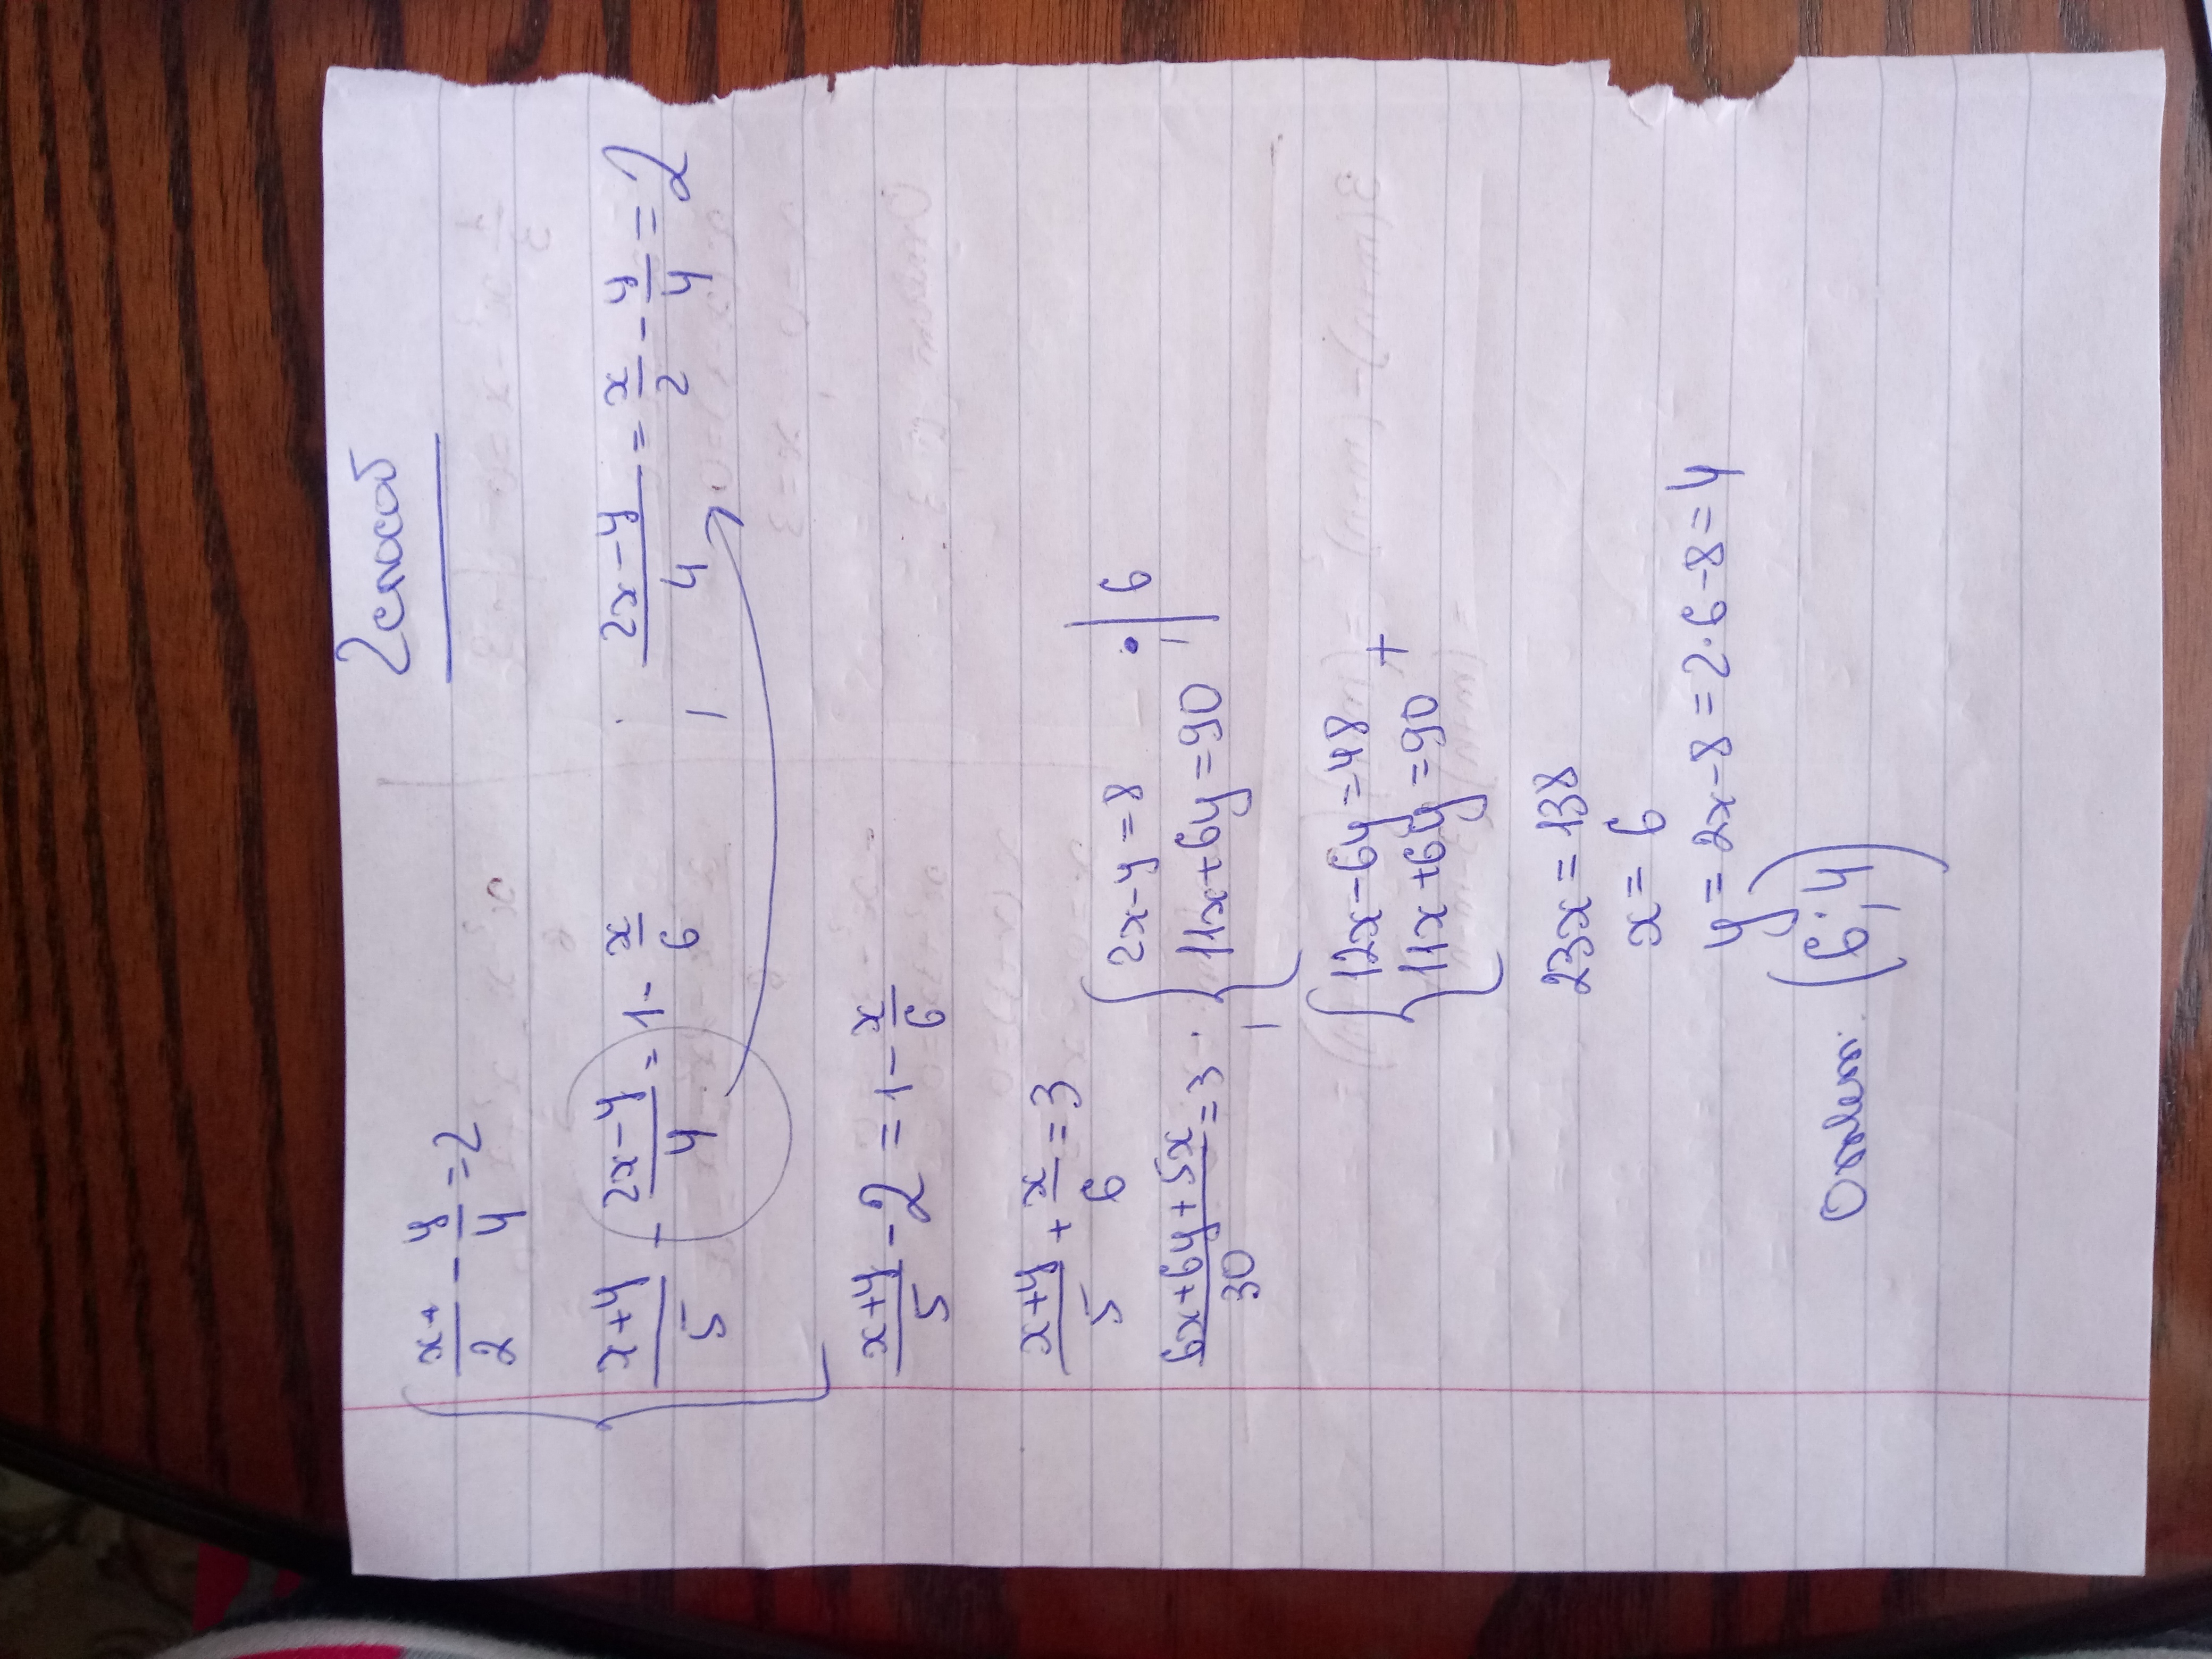 2 способ
x/2 - y/4 = 2
(x+y)/5 - (2x-y)/4 = 1 - x/6
(2x-y)/4 = x/2 - y/4 = 2
(x+y)/5 - 2 = 1 - x/6
(x+y)/5 + x/6 = 3
(6x+6y+5x)/30 = 3
{ 2x-y=8 | · 6
{ 11x+6y=90
{ 12x-6y=48 +
{ 11x+6y=90
23x=138
x=6
y=2x-8=2·6-8=4
Ответ: (6;4)